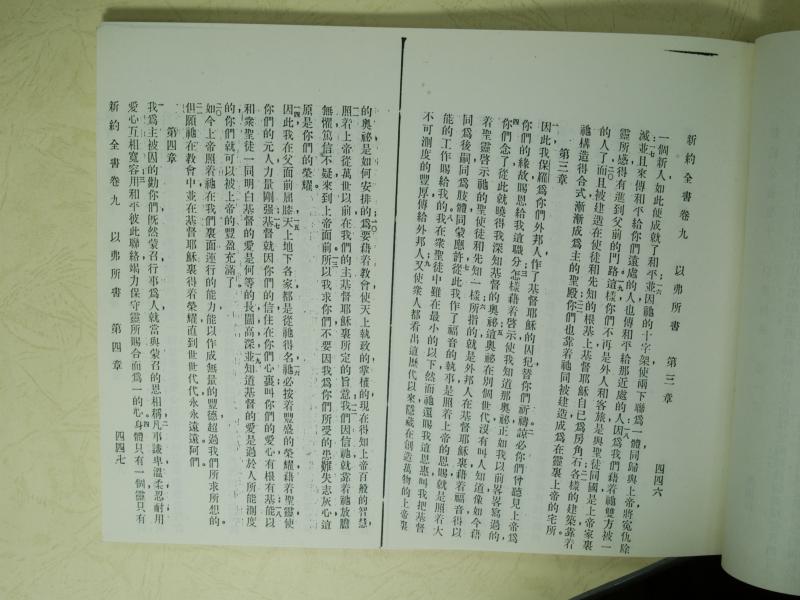 新約全書卷九　以弗所書　第三章　四四六
一個新人如此便成就了和平並因祂的十字架使兩下聯爲一體同歸與上帝將寃仇除
滅並且來傳和平給你們遠處的人也傳和平給那近處的人因爲我們藉着祂雙方被一
靈所感得有進到父前的門路這樣你們不再是外人和客旅是與聖徒同國是上帝家裏
的人了而且被建造在使徒和先知的根基上基督耶穌自己爲房角石各樣的建築靠着
祂構造得合式漸漸成爲主的聖殿你們也靠着祂同被建造成爲在靈裏上帝的宅所
第三章
因此我保羅爲你們外邦人作了基督耶穌的囚犯替你們祈禱諒必你們曾聽見上帝爲
你們的緣故賜恩給我這職分怎樣藉着啓示使我知道那奧祕正如我以前畧畧寫過的
你們念了從此就曉得我深知基督的奧祕這奧祕在別個世代沒有叫人知道像如今藉
着聖靈啓示祂的聖使徒和先知一樣所指的就是外邦人在基督耶穌裏藉着福音得以
同爲後嗣同爲肢體同蒙應許從此我作了福音的執事是照着上帝的恩賜就是照着大
能的工作賜給我的我在衆聖徒中雖在最小的以下然而祂還賜我這恩惠叫我把基督
不可測度的豐厚傳給外邦人又使衆人都看出這歷代以來隱藏在創造萬物的上帝裏
的奧祕是如何安排的爲要藉着教會使天上執政的掌權的現在得知上帝百般的智慧
照着上帝從萬世以前在我們的主基督耶穌裏所定的旨意我們因信祂就靠着祂放膽
無懼篤信不疑來到上帝面前所以我求你們不要因我爲你們所受的患難失志灰心這
原是你們的榮耀
因此我在父面前屈膝天上地下各家都是從祂得名祂必按着豐盛的榮耀藉着聖靈使
你們的元人力量剛强基督就因你們的信住在你們心裏叫你們的愛心有根有基能以
和衆聖徒一同明白基督的愛是何等的長闊高深並知道基督的愛是過於人所能測度
的你們就可以被上帝的豐盈充滿了
如今上帝照着祂在我們裏面運行的能力能以作成無量的豐德超過我們所求所想的
但願祂在教會中並在基督耶穌裏得着榮耀直到世世代代永永遠遠阿們
第四章
我爲主被囚的勸你們既然蒙召行事爲人就當與蒙召的恩相稱凡事謙卑溫柔忍耐用
愛心互相寬容用和平彼此聯絡竭力保守靈所賜合而爲一的心身體只有一個靈只有
新約全書卷九　以弗所書　第四章　四四七